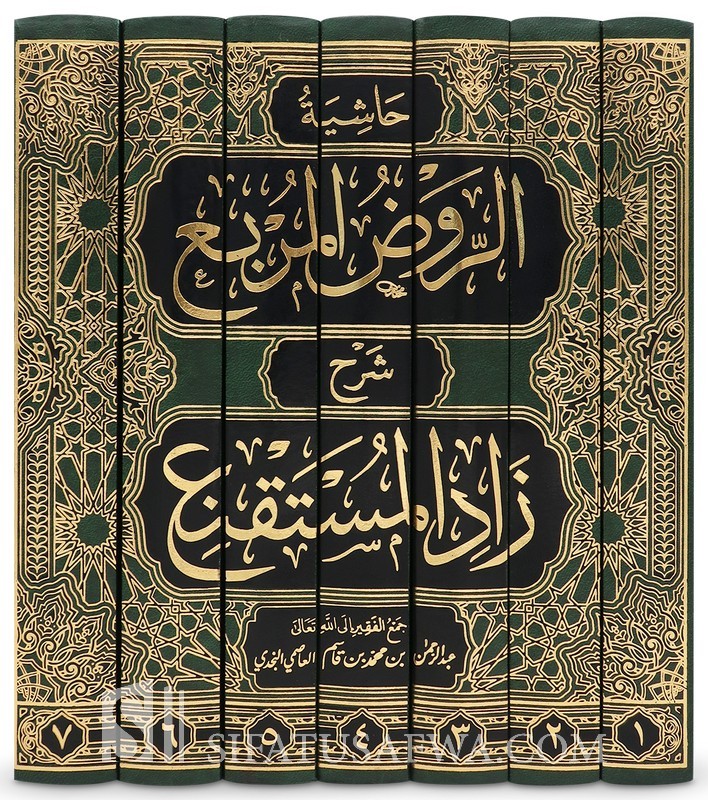 حاشية
الروض المربع
شرح
زاد المستقنع
جمع الفقير إلى الله تعالى
عبد الرحمن بن محمد بن قاسم العاصمي النجدي
١ ٢ ٣ ٤ ٥ ٦ ٧
SIFATUSAFWA.COM